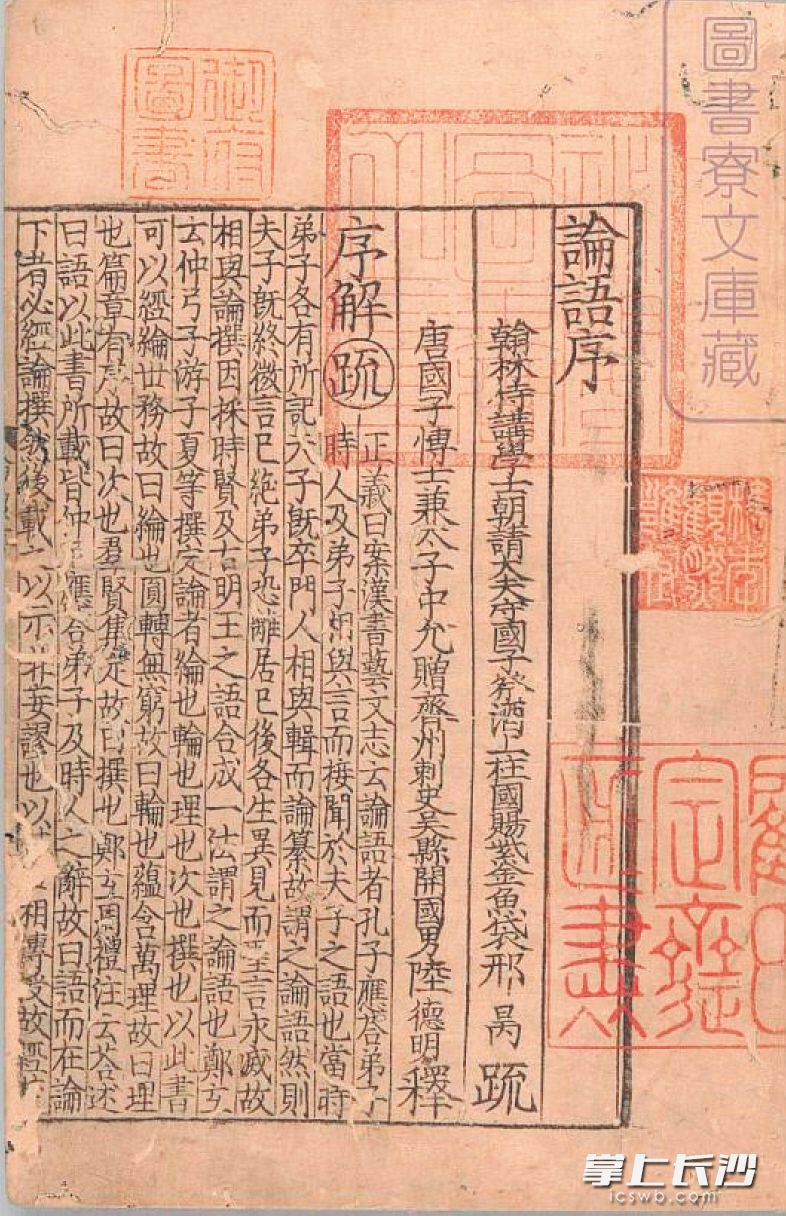 論語序
翰林侍講學士朝請大夫守國子祭酒上柱國賜紫金魚袋邢昺 疏
唐國子博士兼太子中允贈齊州刺史吳縣開國男陸德明 釋
序解疏 正義曰案漢書藝文志云論語者孔子應荅弟子
時人及弟子相與言而接聞於夫子之語也當時
弟子各有所記夫子既卒門人相與輯而論纂故謂之論語然則
夫子既終微言已絕弟子恐離居已後各生異見而聖言永滅故
相與論撰因採時賢及古明王之語合成一法謂之論語也鄭玄
云仲弓子游子夏等撰定論者綸也輪也理也次也撰也以此書
可以經綸世務故曰綸也圓轉無窮故曰輪也蘊含萬理故曰理
也篇章有序故曰次也羣賢集定故曰撰也鄭玄周禮注云荅述
曰語以此書所載皆仲 應荅弟子及時人之辭故曰語而在論
下者必經論撰然後載之以示非妄謬也以 相傳受故經
圖書寮文庫藏
御府圖書
掌上长沙
icswb.com